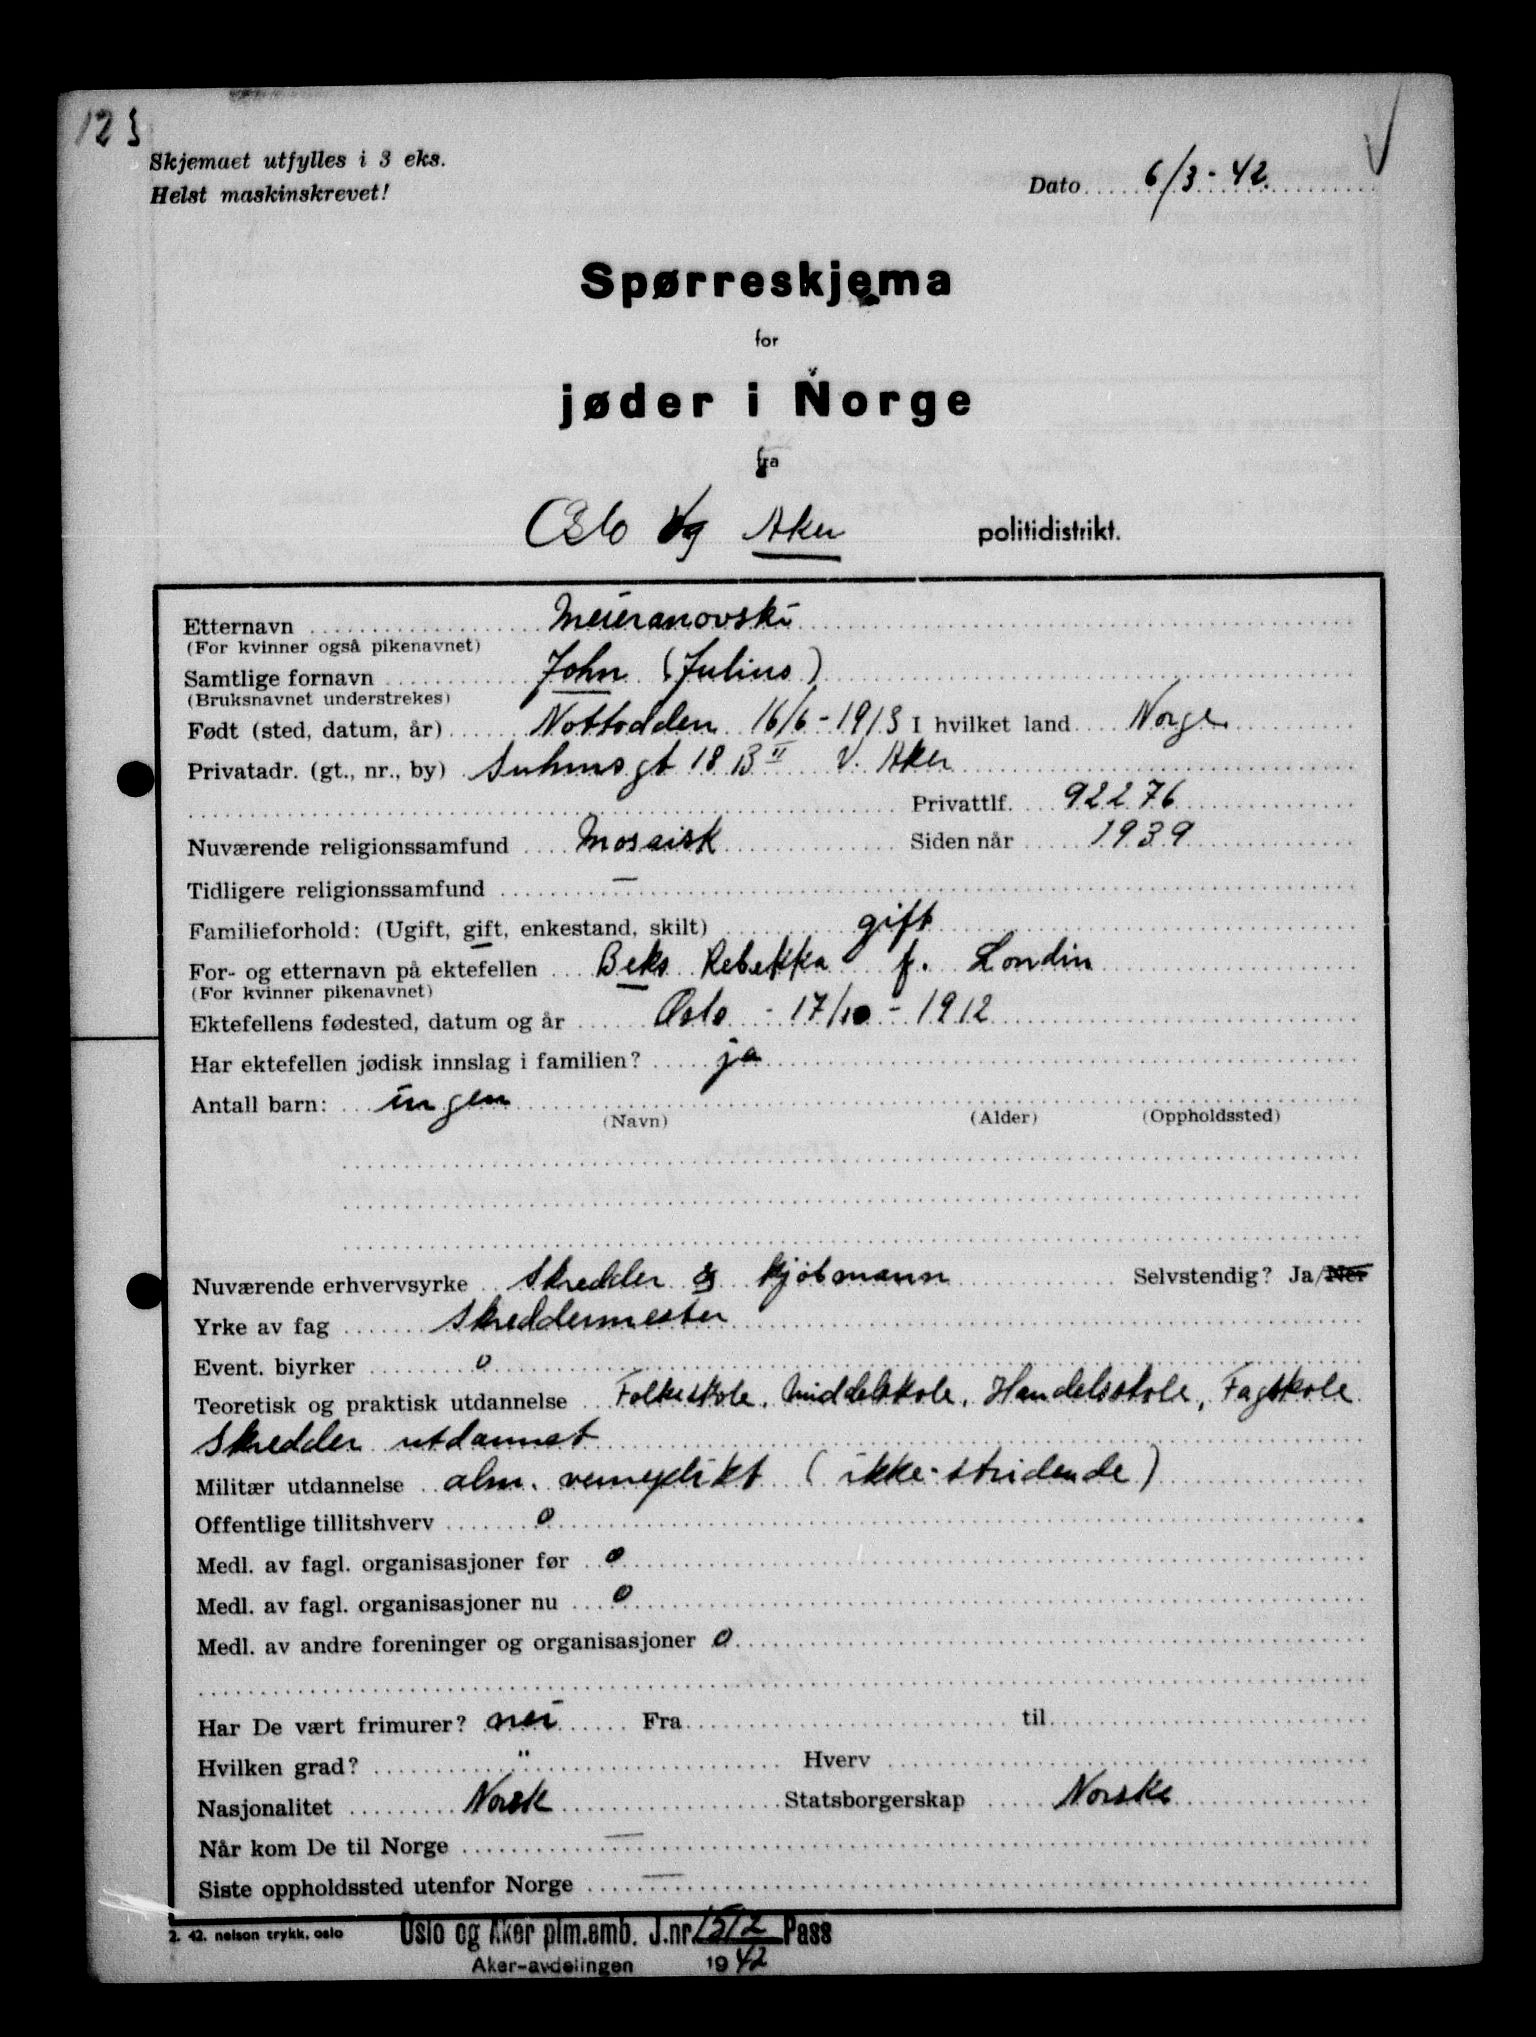 123
Skjemaet utfylles i 3 eks.
Helst maskinskrevet!
Dato 6/3-42.
Spørreskjema
for
jøder i Norge
fra
Oslo og Aker politidistrikt.
Etternavn Meieranovski
(For kvinner også pikenavnet)
Samtlige fornavn John (Julius)
(Bruksnavnet understrekes)
Født (sted, datum, år) Nottodden 16/6-1913 I hvilket land Norge
Privatadr. (gt., nr., by) Suhmsgt 18 B II V. Aker
Privattlf. 92276
Nuværende religionssamfund Mosaisk Siden når 1939
Tidligere religionssamfund —
Familieforhold: (Ugift, gift, enkestand, skilt) gift
For- og etternavn på ektefellen Beks Rebekka f. Londin
(For kvinner pikenavnet)
Ektefellens fødested, datum og år Oslo - 17/10 - 1912
Har ektefellen jødisk innslag i familien? ja
Antall barn: ingen
(Navn) (Alder) (Oppholdssted)
Nuværende erhvervsyrke Skredder & kjøbmann Selvstendig? Ja/Nei
Yrke av fag Skreddermester
Event. biyrker 0
Teoretisk og praktisk utdannelse Folkeskole, Middelskole, Handelsskole, Fagskole
Skredder utdannet
Militær utdannelse alm. verneplikt (ikke-stridende)
Offentlige tillitshverv 0
Medl. av fagl. organisasjoner før 0
Medl. av fagl. organisasjoner nu 0
Medl. av andre foreninger og organisasjoner 0
Har De vært frimurer? nei Fra til
Hvilken grad? " Hverv
Nasjonalitet Norsk Statsborgerskap Norsk
Når kom De til Norge —
Siste oppholdssted utenfor Norge —
2. 42. nelson trykk, oslo
Oslo og Aker plm.emb. J.nr. 1512 Pass
Aker-avdelingen 1942